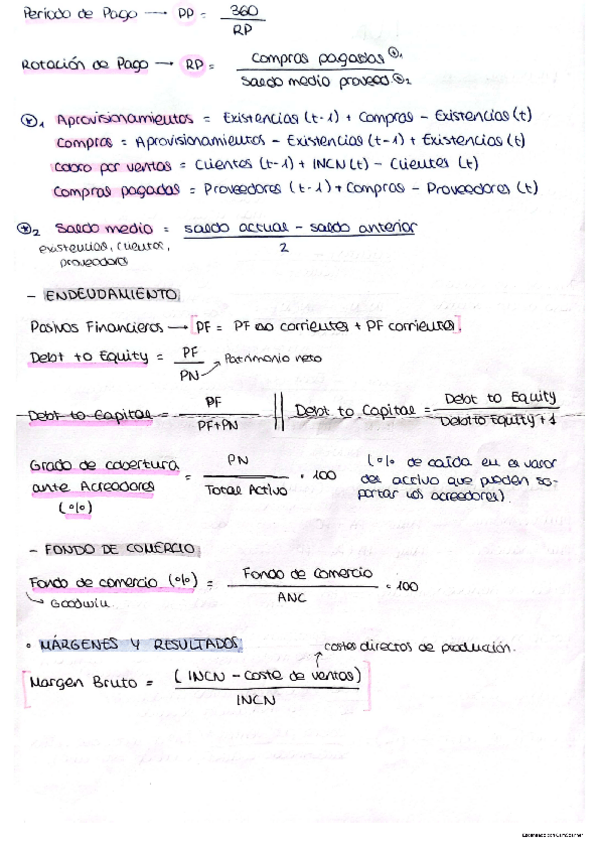 Período de Pago → PP = 360 / RP
Rotación de Pago → RP = Compras pagadas ⊛1 / Saldo medio proveed ⊛2
⊛1 Aprovisionamientos = Existencias (t-1) + Compras - Existencias (t)
Compras = Aprovisionamientos - Existencias (t-1) + Existencias (t)
Cobro por ventas = Clientes (t-1) + INCN (t) - Clientes (t)
Compras pagadas = Proveedores (t-1) + Compras - Proveedores (t)
⊛2 Saldo medio = saldo actual - saldo anterior / 2
existencias, clientes,
proveedores
- ENDEUDAMIENTO
Pasivos Financieros → [PF = PF no corrientes + PF corrientes].
Debt to Equity = PF / PN → Patrimonio neto
Debt to Capital = PF / PF+PN || Debt to Capital = Debt to Equity / Debt to Equity + 1
Grado de cobertura ante Acreedores (%) = PN / Total Activo · 100
(% de caída en el valor
del activo que pueden so-
portar los acreedores).
- FONDO DE COMERCIO
Fondo de comercio (%) = Fondo de Comercio / ANC · 100
↳ Goodwill
• MÁRGENES Y RESULTADOS
costes directos de producción.
[Margen Bruto = (INCN - coste de ventas) / INCN]